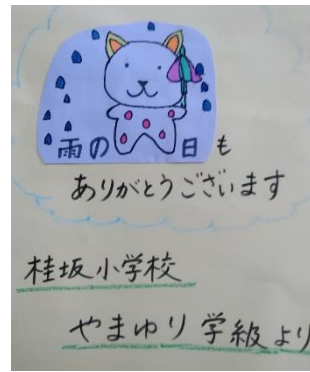 雨の日も
ありがとうございます
桂坂小学校
やまゆり学級より